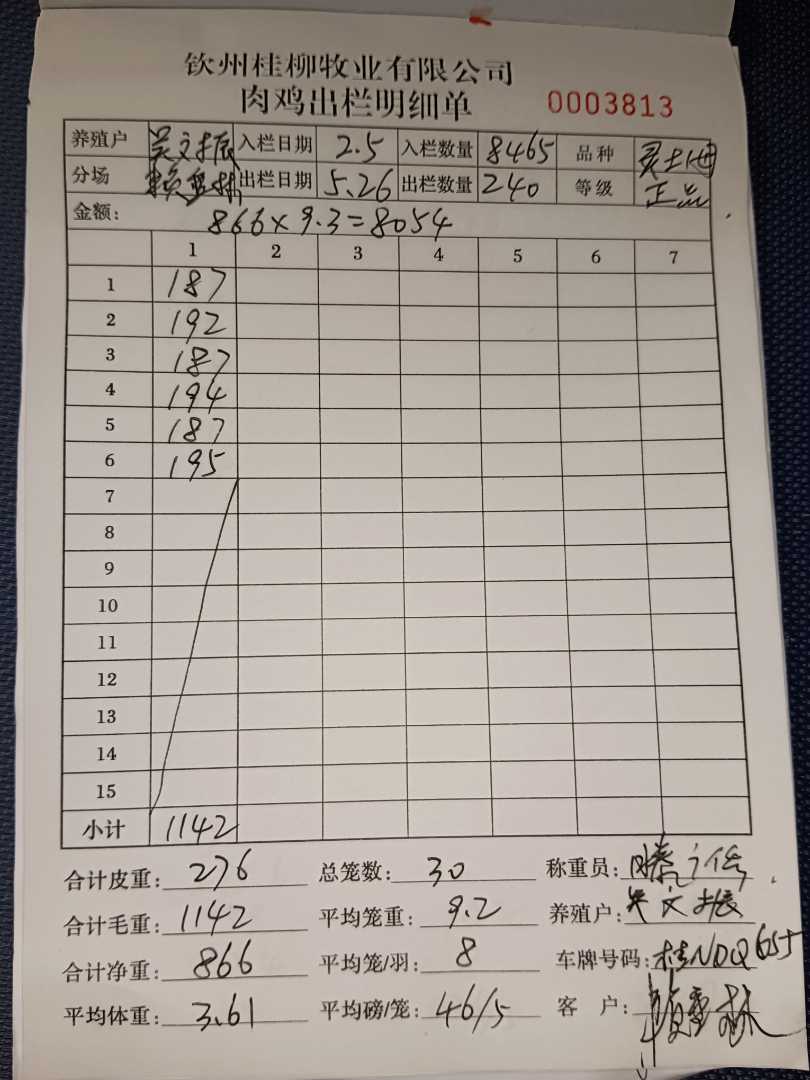 钦州桂柳牧业有限公司
肉鸡出栏明细单 0003813
养殖户 吴文振 入栏日期 2.5 入栏数量 8465 品种 灵土
分场 出栏日期 5.26 出栏数量 240 等级 正品
金额: 866×9.3=8054
1 2 3 4 5 6 7
1 187
2 192
3 187
4 194
5 187
6 195
7
8
9
10
11
12
13
14
15
小计 1142
合计皮重: 276 总笼数: 30 称重员:
合计毛重: 1142 平均笼重: 9.2 养殖户: 吴文振
合计净重: 866 平均笼/羽: 8 车牌号码: 桂NDQ655
平均体重: 3.61 平均磅/笼: 46/5 客 户: